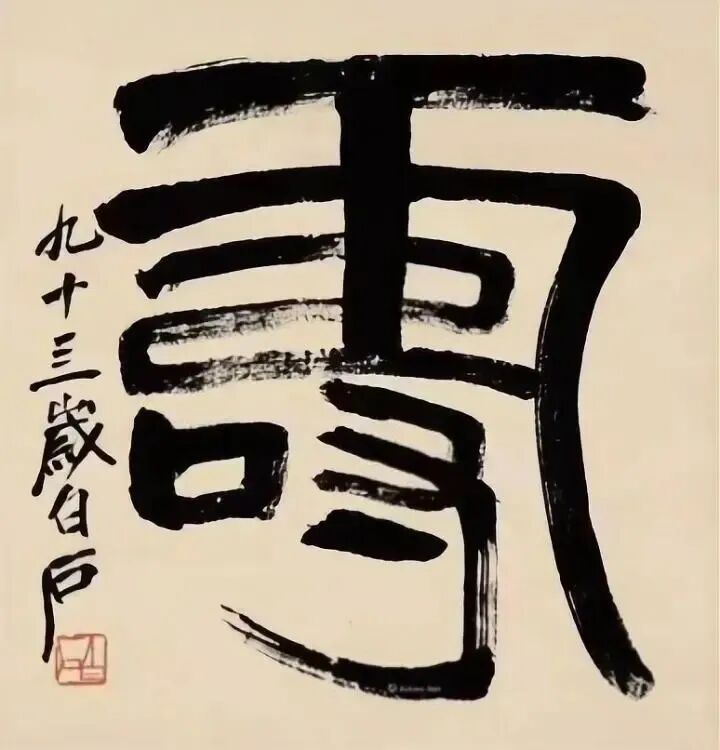 壽
九十三歲白石